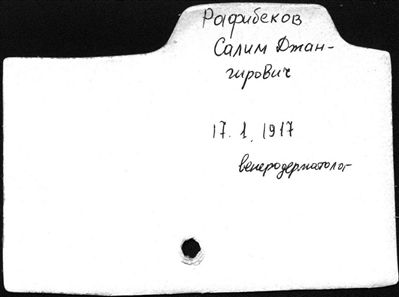 Рафибеков
Салим Джан-
гирович
17. 1. 1917
венеродерматолог